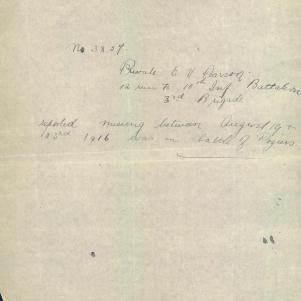 No 3827
Private E V Pearson
12 rein To 10th Inf Battalion
3rd Brigade
reported missing between August 19 +
23rd 1916 was in battle of Pozieres